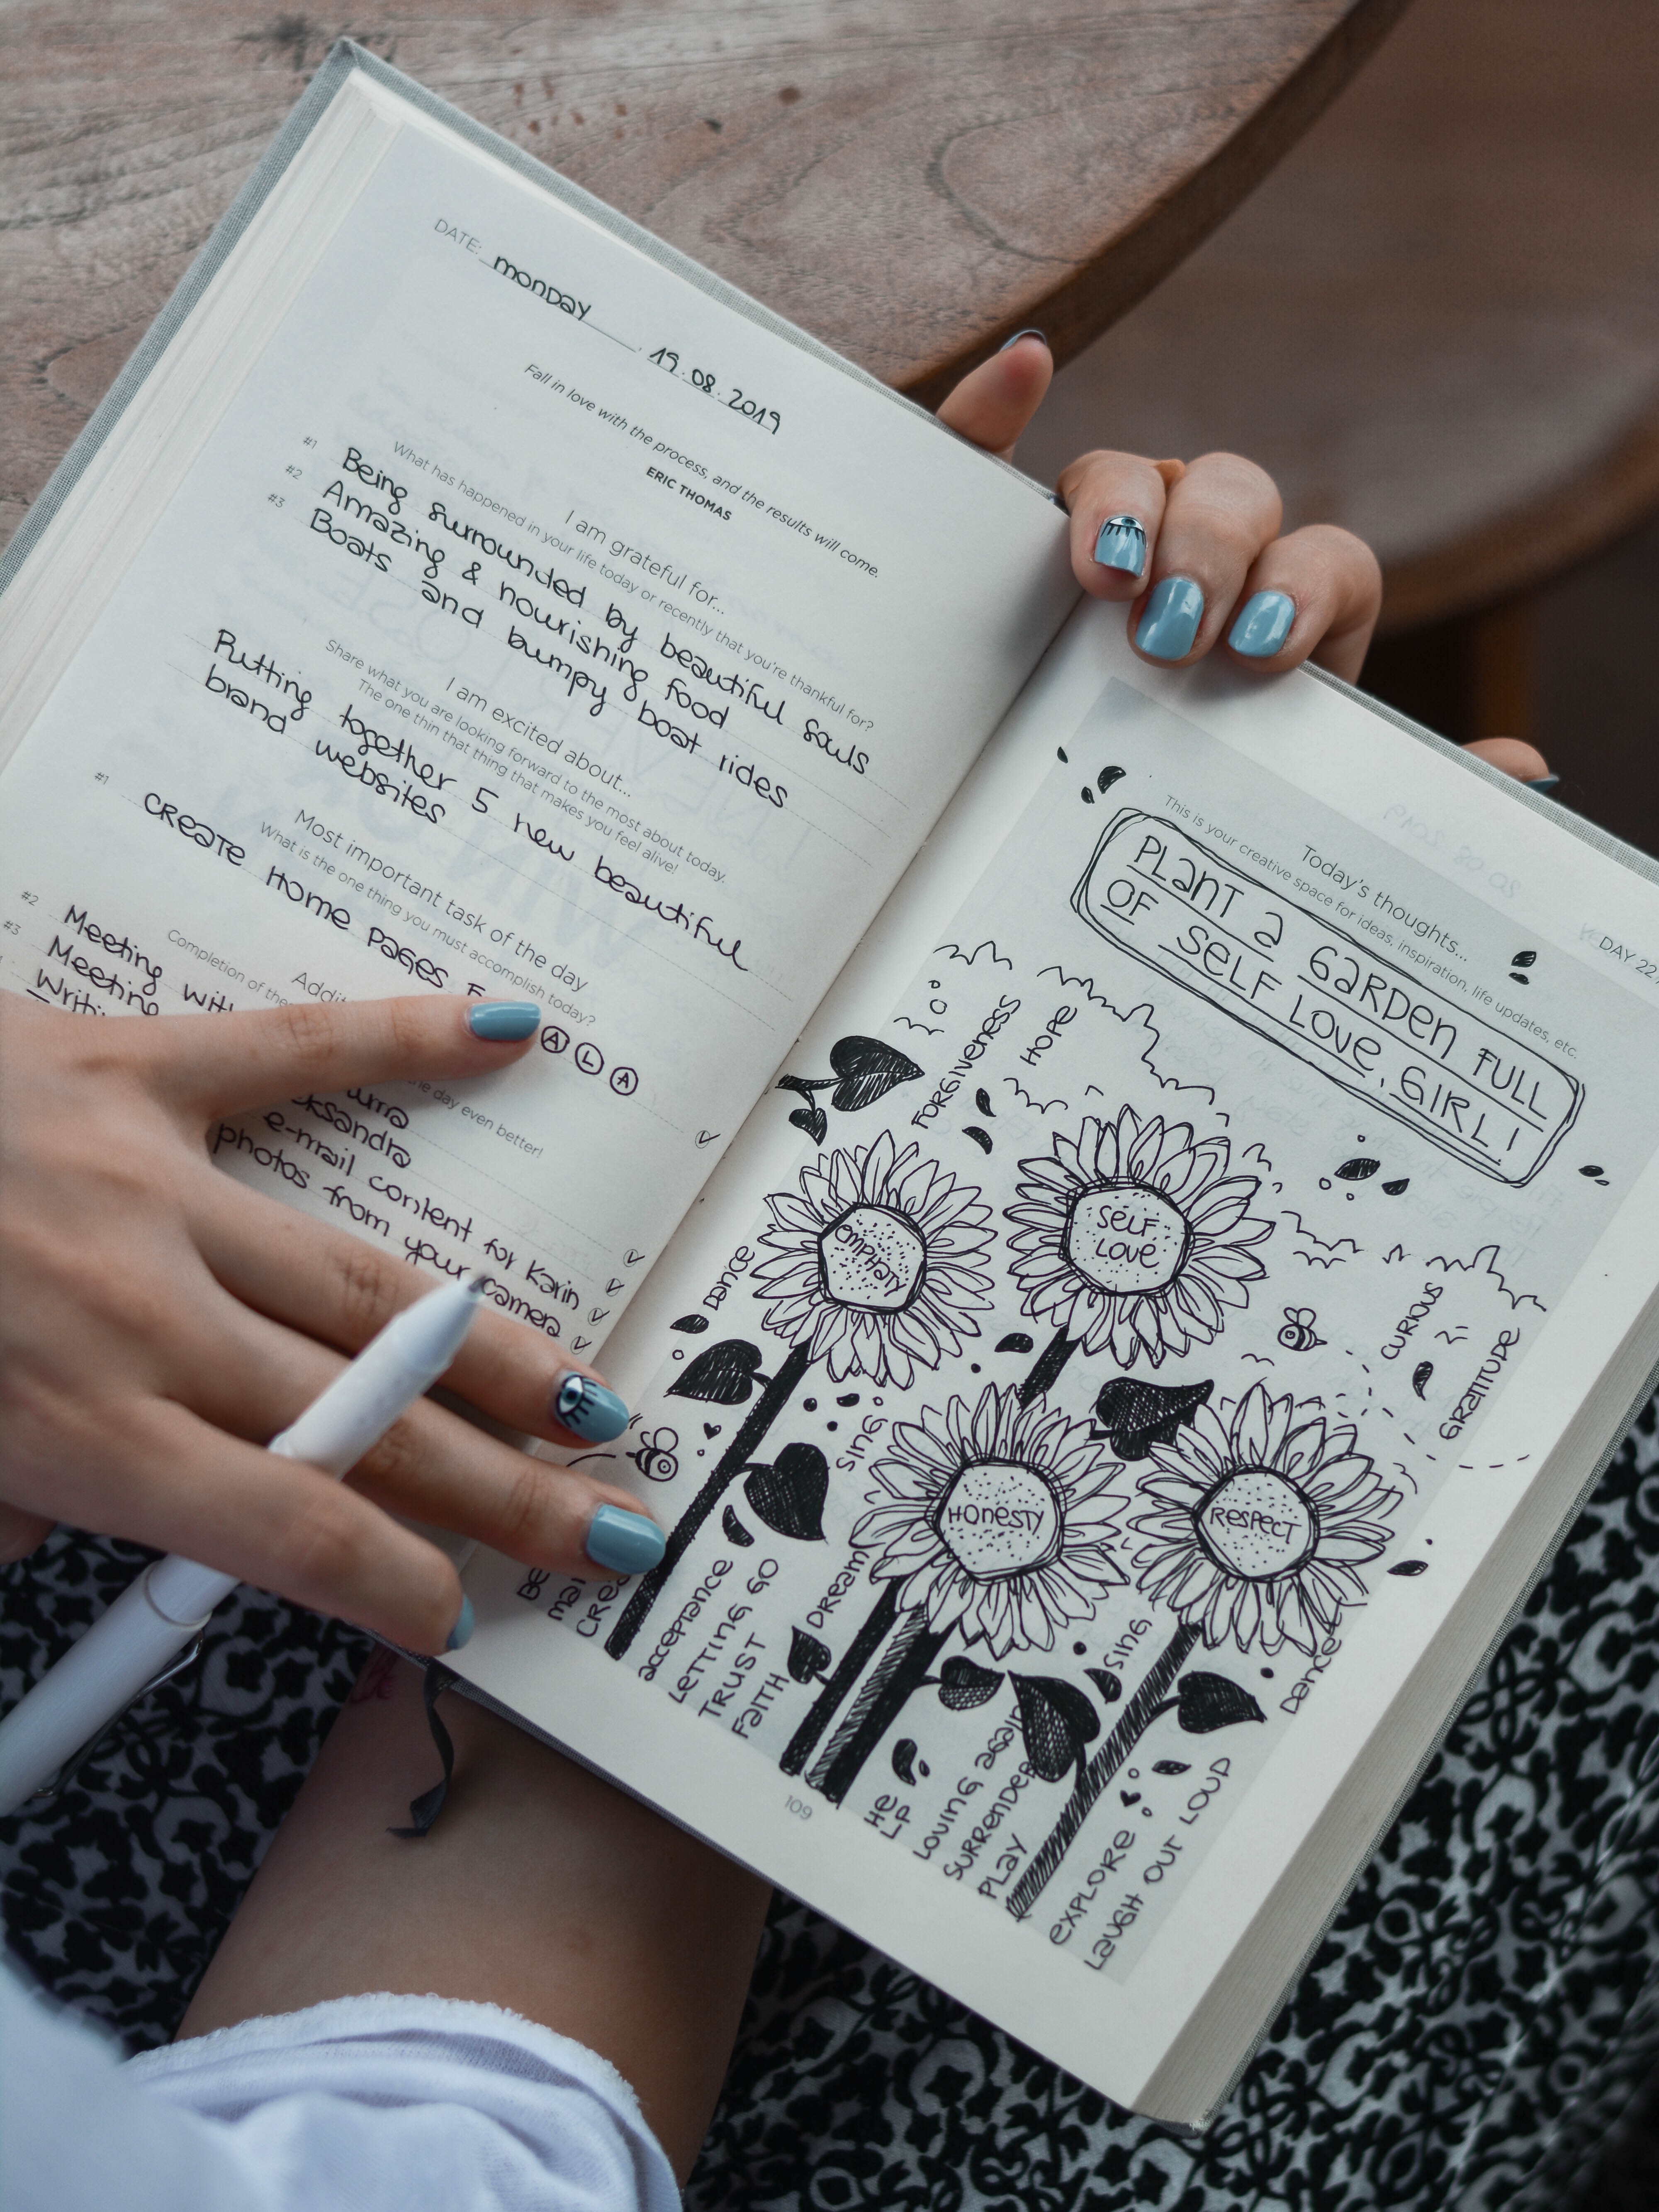 DATE: monday . 19.08.2019
Fall in love with the process, and the results will come.
ERIC THOMAS
I am grateful for...
What has happened in your life today or recently that you're thankful for?
#1 Being surrounded by beautiful souls
#2 Amazing & nourishing food
#3 Boats and bumpy boat rides
I am excited about...
Share what you are looking forward to the most about today.
The one thin that thing that makes you feel alive!
Putting together 5 new beautiful
brand websites
Most important task of the day
What is the one thing you must accomplish today?
#1 CREATE HOME PAGES
A L A
Completion of
the day even better!
#2 Meeting
#3 Meeting
e-mail content for Karin
photos from your camera
DAY 22
Today's thoughts...
This is your creative space for ideas, inspiration, life updates, etc.
PLANT A GARDEN FULL
OF SELF LOVE, GIRL!
FORGIVENESS
HOPE
EMPHATY
SELF
LOVE
DANCE
CURIOUS
GRATITUDE
SING
HONESTY
RESPECT
ACCEPTANCE
LETTING GO
TRUST
FAITH
DREAM
SING
DANCE
HE
LP
LOVING AGAIN
SURRENDER
PLAY
EXPLORE
LAUGH OUT LOUD
109